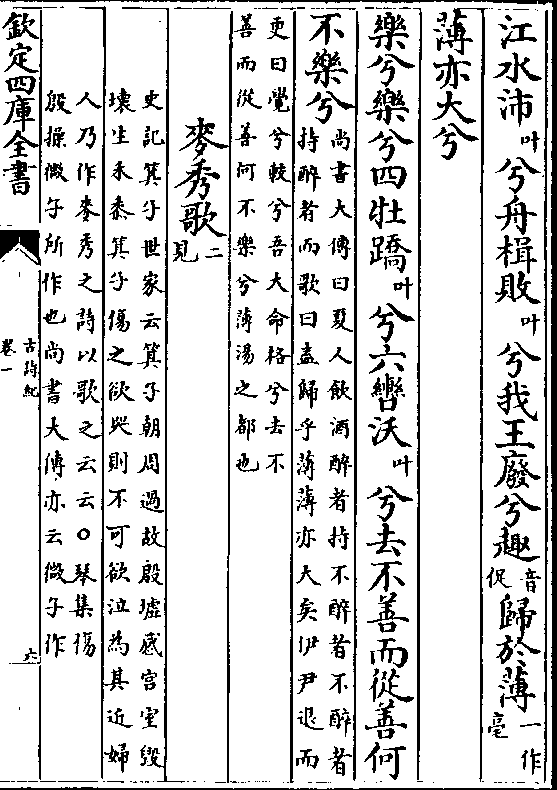 江水沛叶兮舟楫敗叶兮我王廢兮趣音促歸於薄一作亳
薄亦大兮
樂兮樂兮四牡蹻叶兮六轡沃叶兮去不善而從善何
不樂兮尚書大傳曰夏人飲酒醉者持不醉者不醉者
持醉者而歌曰盍歸乎薄薄亦大矣伊尹退而
更曰覺兮較兮吾大命格兮去不
善而從善何不樂兮薄湯之都也
麥秀歌二見
史記箕子世家云箕子朝周過故殷墟感宮室毀
壞生禾黍箕子傷之欲哭則不可欲泣為其近婦
人乃作麥秀之詩以歌之云云○琴集傷
殷操微子所作也尚書大傳亦云微子作
欽定四庫全書
古詩紀
卷一
六